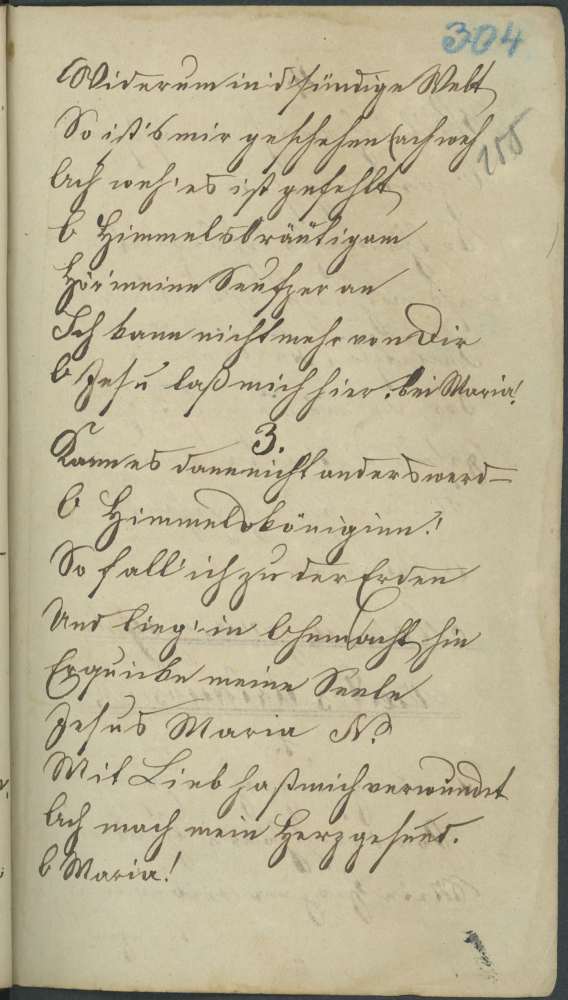 304
Widerum in d' sündige Welt
155
So ist's mir geschehen (ach weh
Ach weh' es ist gefehlt
O Himmelsbräutigam
Hör' meine Seufzer an
Ich kann nicht mehr von Dir
O Jesu laß mich hier, bei Maria!
3.
Kann es dann nicht anders werd–
O Himmelsköniginn!
So fall' ich zu der Erden
Und lieg' in Ohnmacht hin
Erquicke meine Seele
Jesus Maria N.
Mit Lieb hast mich verwundt
Ach mach mein Herz gesund.
O Maria!